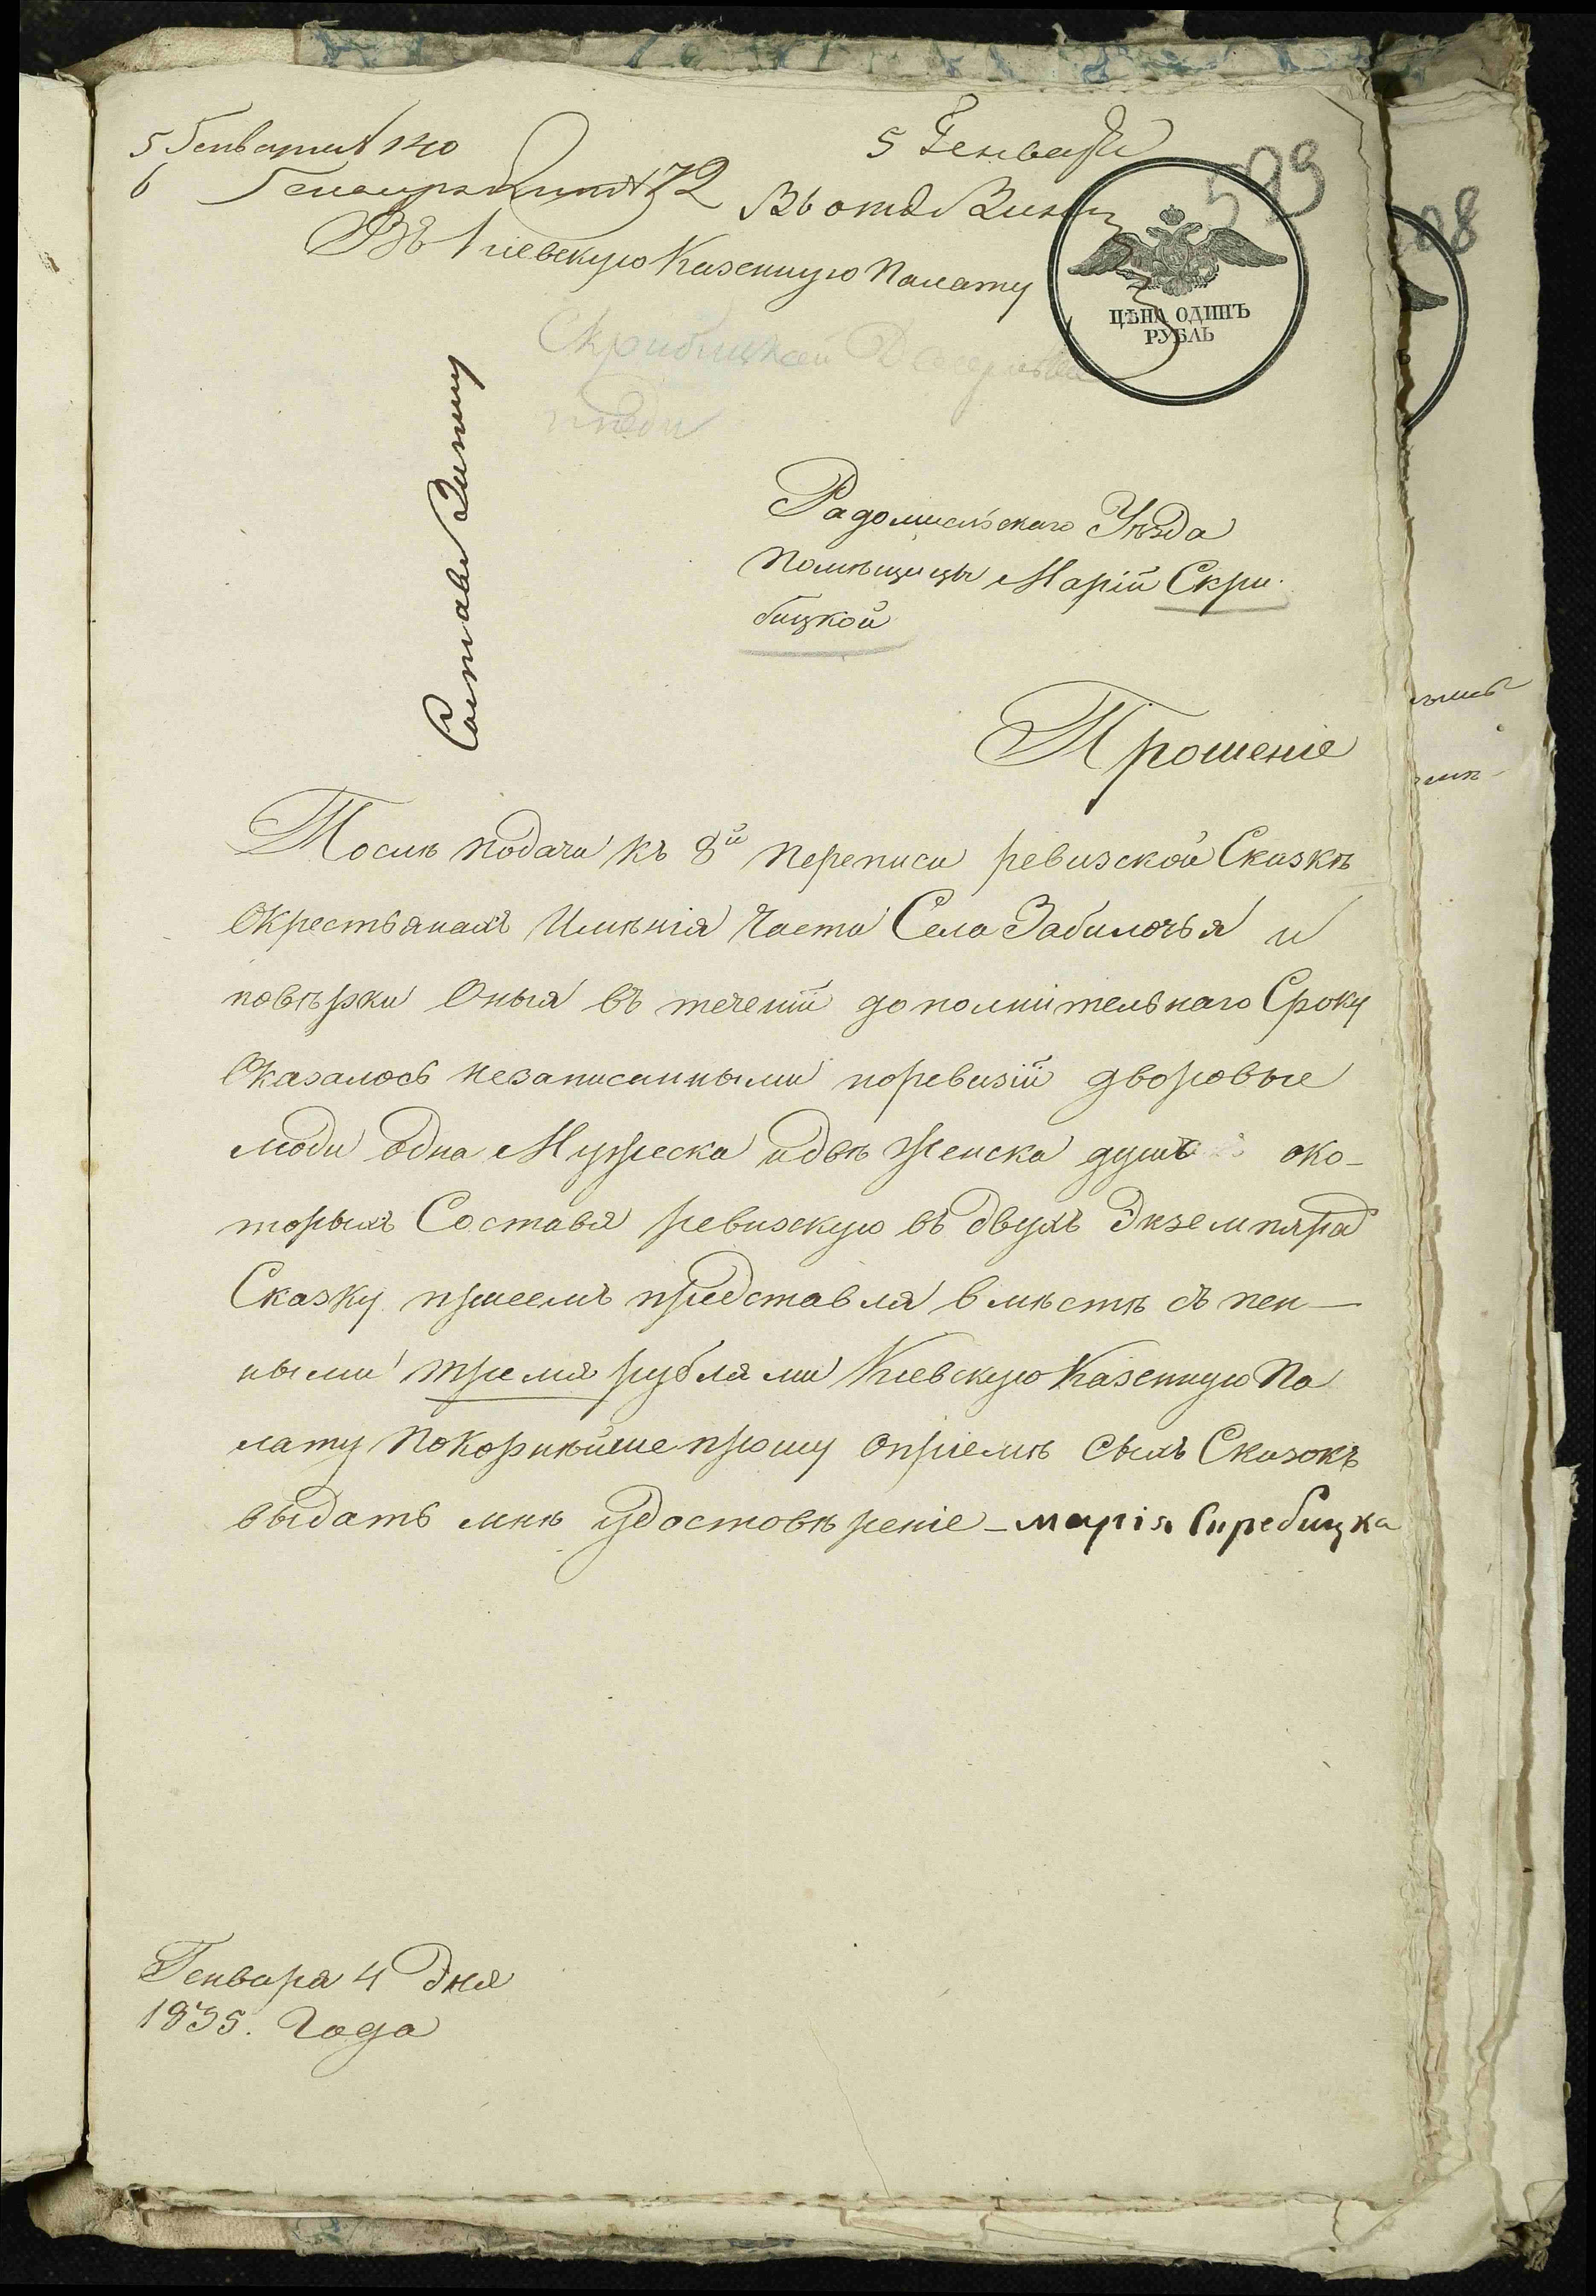 5 Генваря № 140
5 Генваря
6 Генваря № 72
Въ отд.
593
Въ Кіевскую Казенную Палату
ЦѢНА ОДИНЪ
РУБЛЬ
Скрибицкой
Радомисльскаго Уѣзда
Помѣщицы Маріи Скри-
бицкой
Прошеніе
Послѣ подачи къ 8й переписи ревизской Сказкѣ
Окрестьянахъ Имѣнія Части Села Забилочья и
повѣрки Оныя въ теченіи дополнительнаго Сроку
Оказалось незаписанными поревизіи дворовые
люди одна Мужеска идвѣ Женска душъ око-
торыхъ Составя ревизскую въ двухъ Экземпляра
Сказку присемъ представля вмѣстѣ съ пен-
ными тремя рублями Кіевскую Казенную Па
лату Покорнѣйше прошу опріемѣ сѣхъ Сказокъ
выдать мнѣ удостовѣреніе - Марія Скребицка
Генваря 4 дня
1835. Года